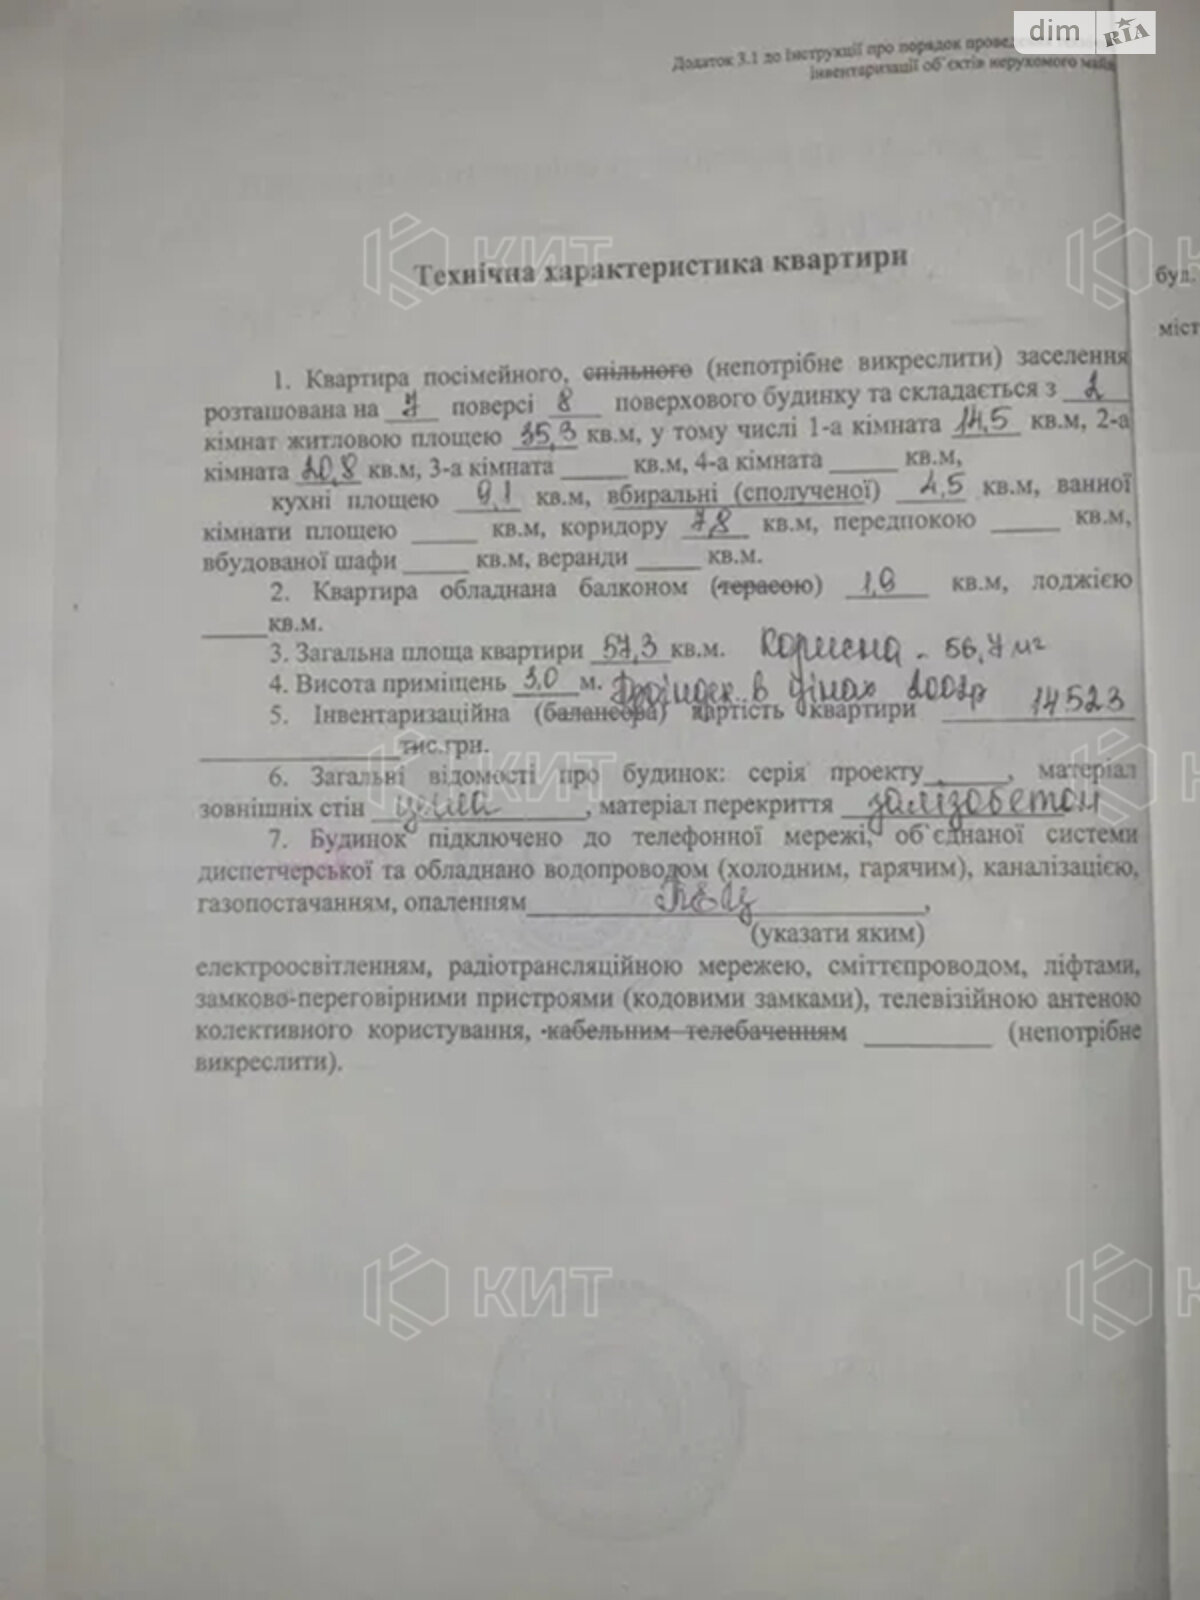 dim RIA
Додаток 3.1 до Інструкції про порядок
інвентаризації об`єктів нерухомого майн
КИТ
Технічна характеристика квартири
буд.
міст
1. Квартира посімейного, спільного (непотрібне викреслити) заселення
розташована на 7 поверсі 8 поверхового будинку та складається з 2
кімнат житловою площею 35,3 кв.м, у тому числі 1-а кімната 14,5 кв.м, 2-а
кімната 20,8 кв.м, 3-а кімната ____ кв.м, 4-а кімната ____ кв.м,
кухні площею 9,1 кв.м, вбиральні (сполученої) 4,5 кв.м, ванної
кімнати площею ____ кв.м, коридору 7,8 кв.м, передпокою ____ кв.м,
вбудованої шафи ____ кв.м, веранди ____ кв.м.
2. Квартира обладнана балконом (терасою) кв.м, лоджією
____кв.м.
3. Загальна площа квартири 57,3 кв.м. Корисна - 56,7 м2
4. Висота приміщень 3,0 м. в цінах
5. Інвентаризаційна (балансова) вартість квартири 14523
____ тис.грн.
6. Загальні відомості про будинок: серія проекту ____, матеріал
зовнішніх стін цегла, матеріал перекриття залізобетон
7. Будинок підключено до телефонної мережі, об`єднаної системи
диспетчерської та обладнано водопроводом (холодним, гарячим), каналізацією,
газопостачанням, опаленням ТЕЦ,
(указати яким)
електроосвітленням, радіотрансляційною мережею, сміттєпроводом, ліфтами,
замково-переговірними пристроями (кодовими замками), телевізійною антеною
колективного користування, кабельним телебаченням ____ (непотрібне
викреслити).
КИТ